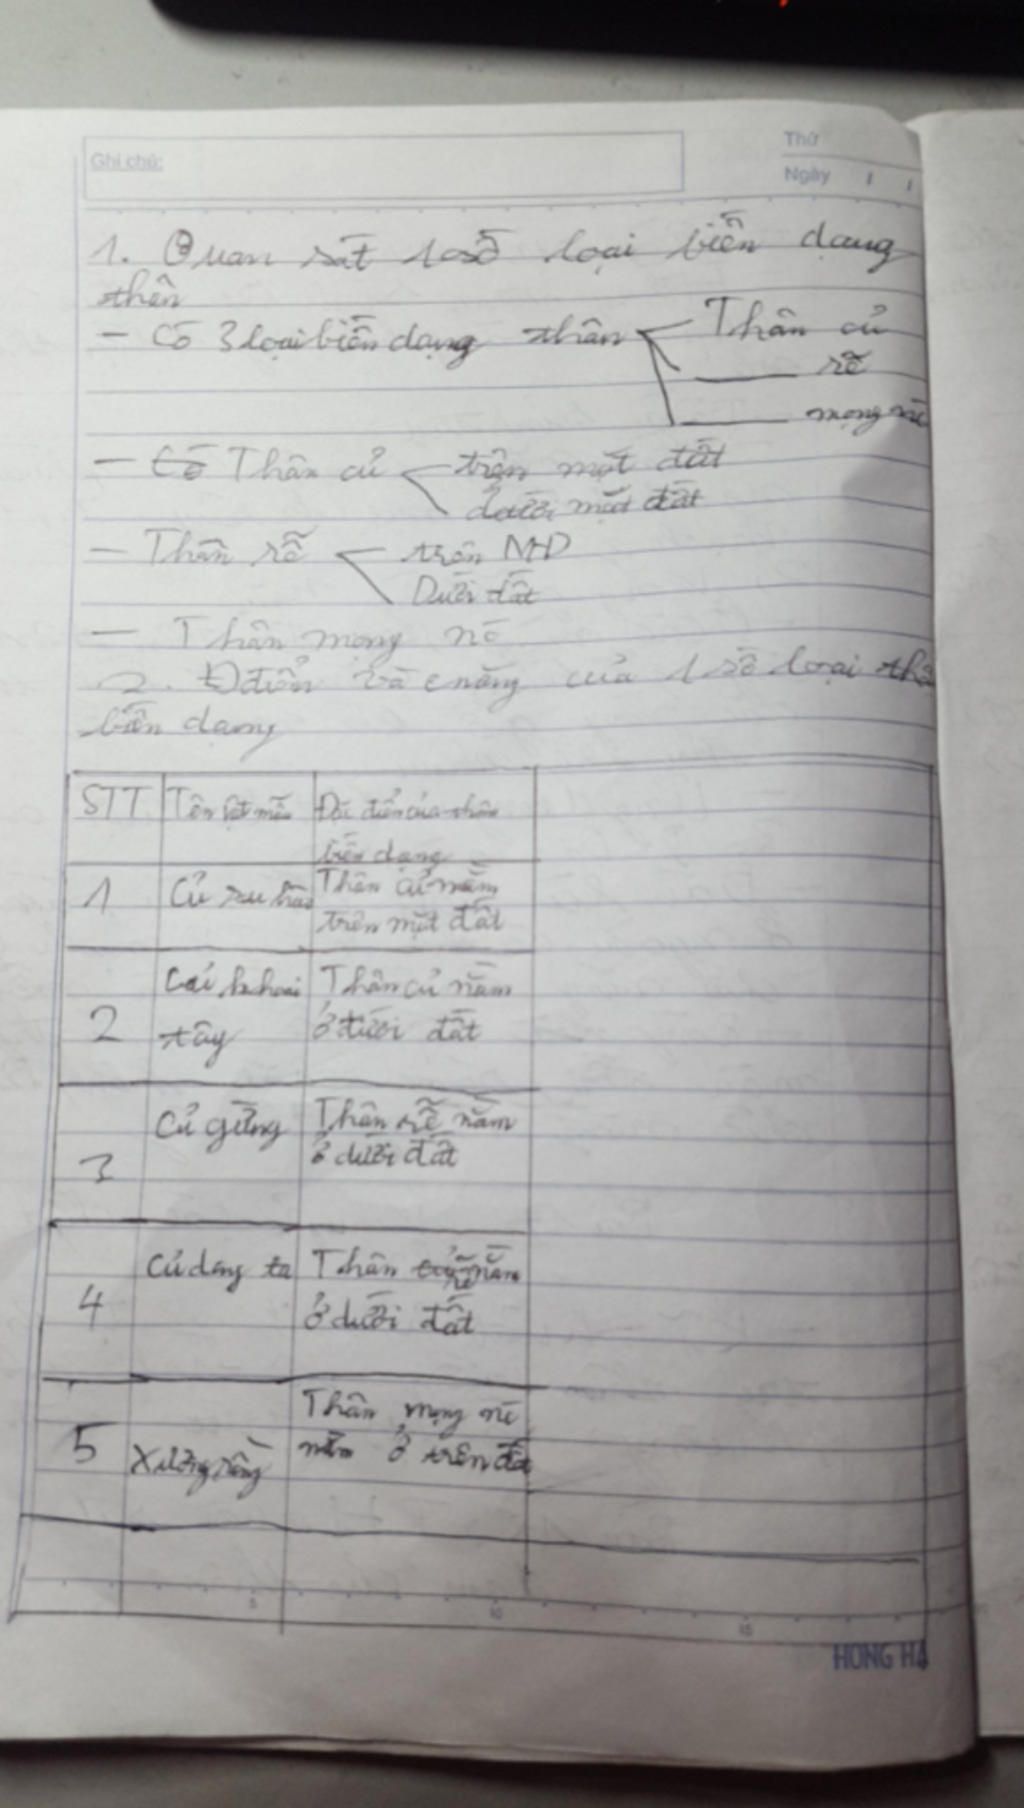 Ghi chú:
Thứ
Ngày / /
1. Quan sát 1 số loại biến dạng
thân
- Có 3 loại biến dạng thân Thân củ
rễ
mọng nước
- Có Thân củ trên mặt đất
dưới mặt đất
- Thân rễ trên MĐ
Dưới đất
- Thân mọng nc
2. Đ điển và c năng của 1 số loại thâ
biến dạng
STT Tên vật mẫu Đặc điển của thân
biến dạng
1 Củ su hào Thân củ nằm
trên mặt đất
2 Củ khoai Thân củ nằm
tây ở dưới đất
3 Củ gừng Thân rễ nằm
ở dưới đất
4 Củ dong ta Thân rễ nằm
ở dưới đất
5 Xương rồng Thân mọng nc
nằm ở trên đất
5 10 15
HONG HA